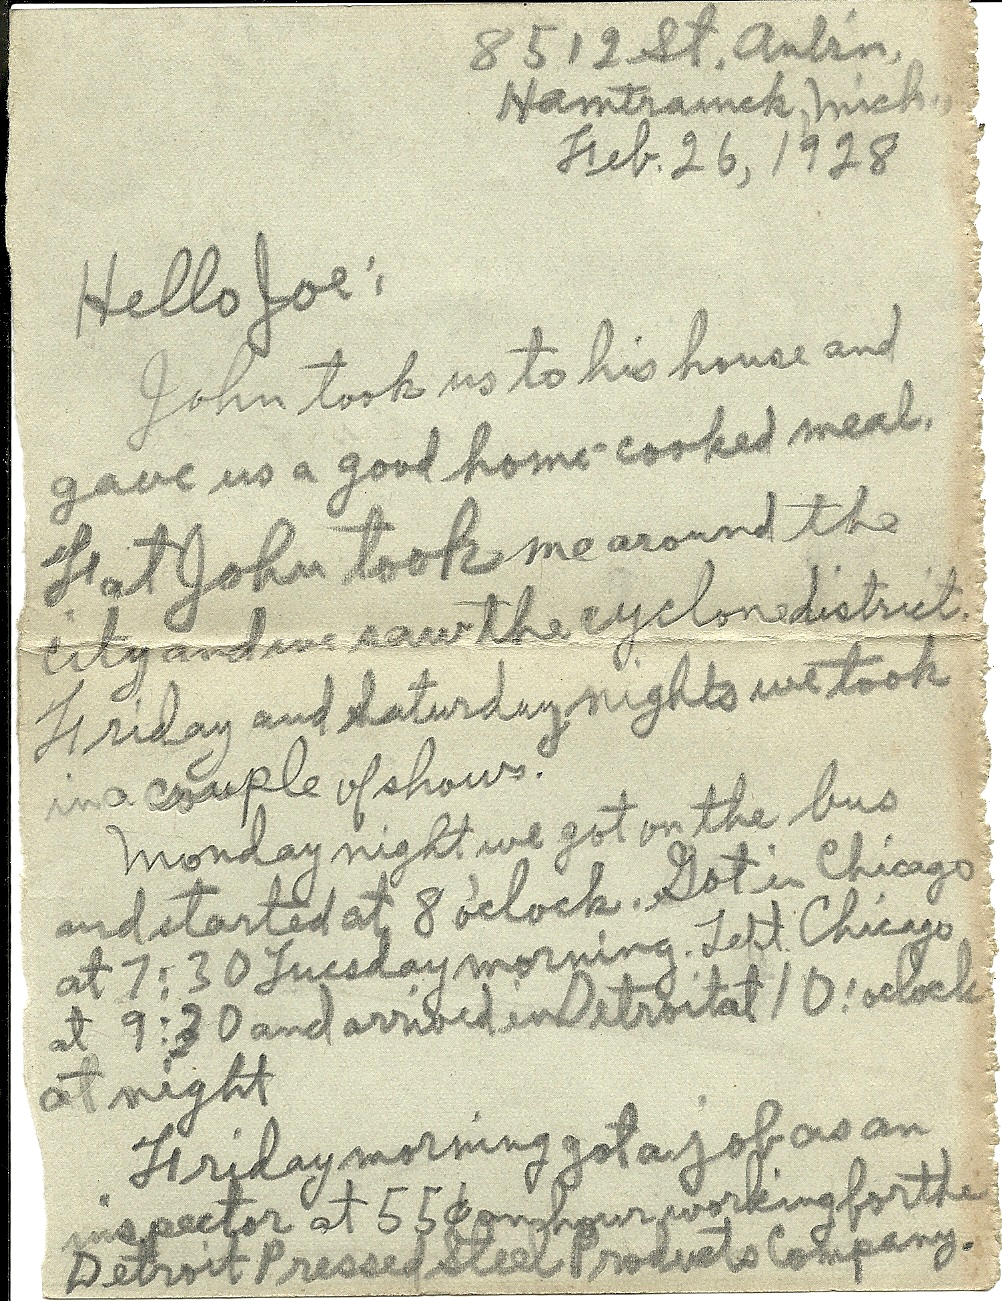 8512 St. Aubin,
Hamtramck, Mich.,
Feb. 26, 1928
Hello Joe;
John took us to his house and
gave us a good home-cooked meal.
Fat John took me around the
city and we saw the cyclone district.
Friday and Saturday nights we took
in a couple of shows.
Monday night we got on the bus
and started at 8 o'clock. Got in Chicago
at 7:30 Tuesday morning. Left Chicago
at 9:30 and arrived in Detroit at 10:oclock
at night
Friday morning got a job as an
inspector at 55¢ an hour working for the
Detroit Pressed Steel Products Company.